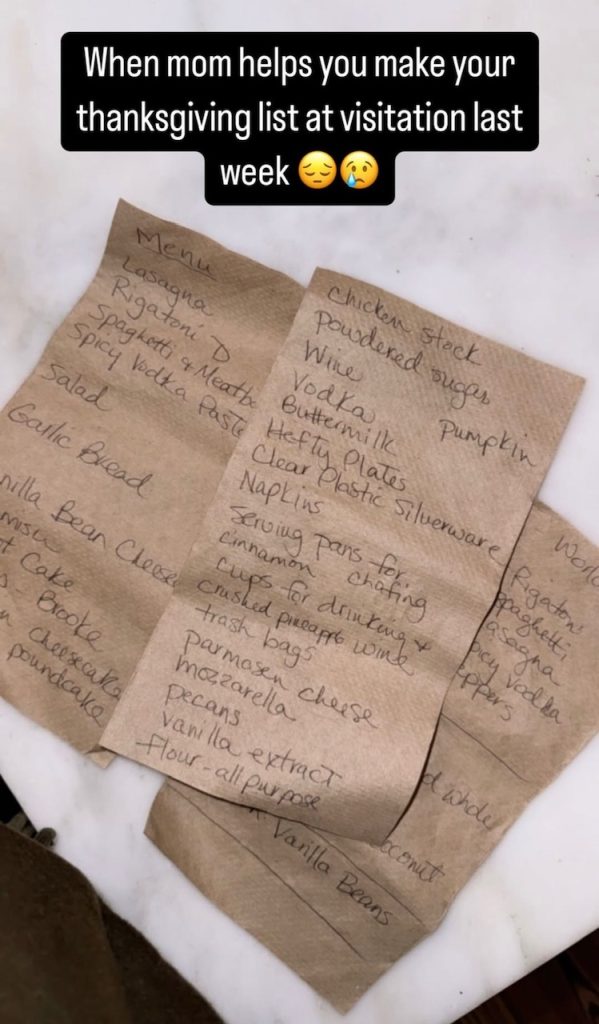 When mom helps you make your
thanksgiving list at visitation last
week 😔😢
Menu
Lasagna
Rigatoni D
Spaghetti & Meatba
Spicy Vodka Paste
Salad
Garlic Bread
nilla Bean Cheese
misu
t Cake
s - Brooke
n cheesecake
poundcake
chicken stock
powdered sugar
Wine
Vodka
Pumpkin
Buttermilk
Hefty Plates
Clear Plastic Silverware
Napkins
serving pans for
cinnamon chafing
cups for drinking &
crushed pineapple wine
trash bags
parmasen cheese
mozzarella
pecans
vanilla extract
flour - all purpose
World
Rigatoni
spaghetti
asagna
picy vodka
eppers
d whole
oconut
Vanilla Beans